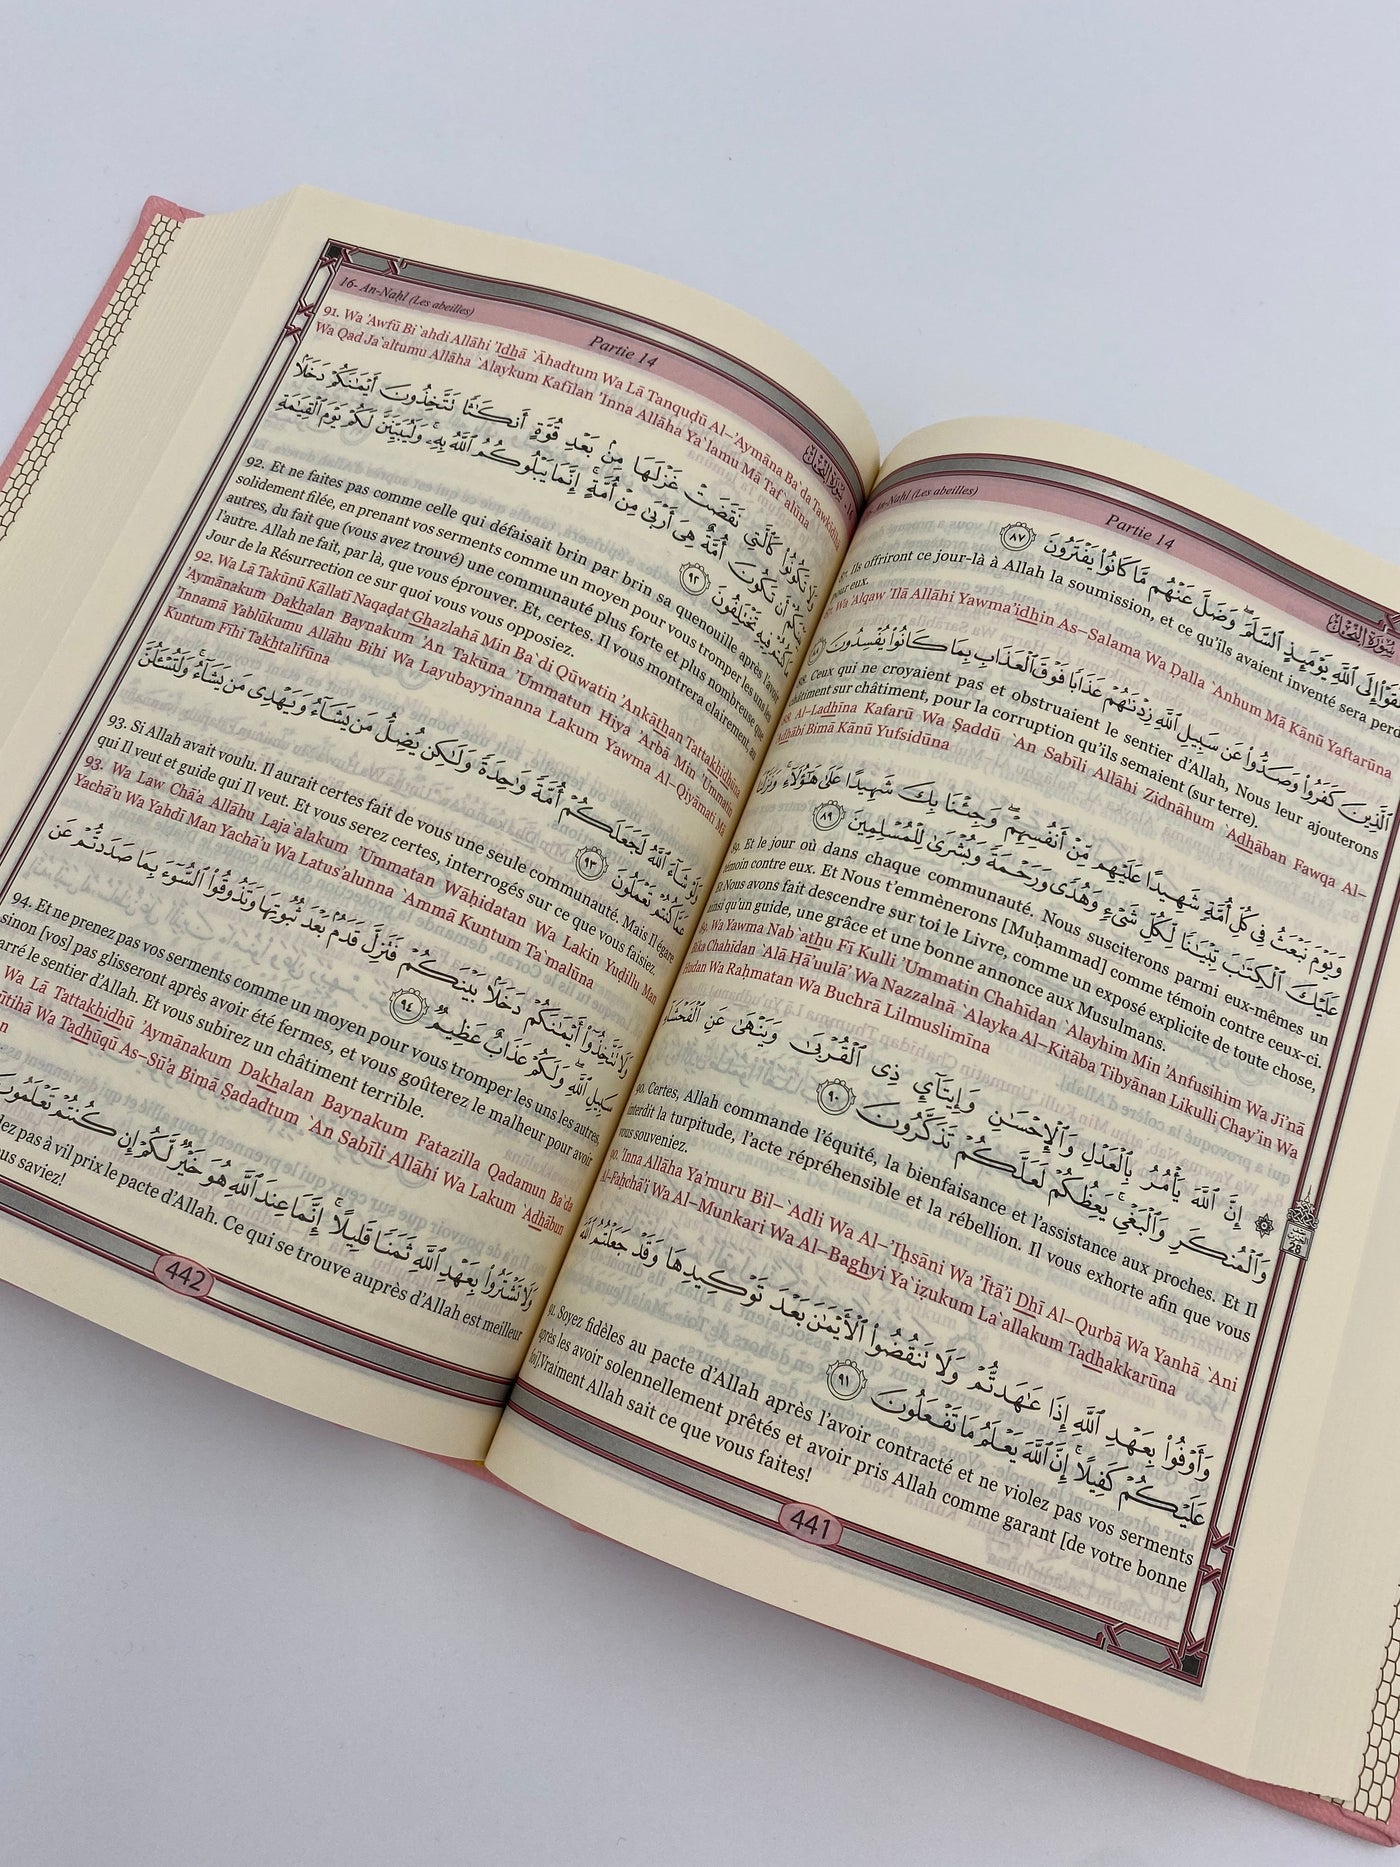 16- An-Naḥl (Les abeilles)
Partie 14
سُورَةُ النَّحْلِ
إِلَى ٱللَّهِ يَوْمَئِذٍ ٱلسَّلَمَ ۖ وَضَلَّ عَنْهُم مَّا كَانُوا۟ يَفْتَرُونَ ٨٧
87. Ils offriront ce jour-là à Allah la soumission, et ce qu'ils avaient inventé sera perdu
pour eux.
Wa 'Alqaw 'Ilā Allāhi Yawma'idhin As–Salama Wa Ḍalla `Anhum Mā Kānū Yaftarūna
ٱلَّذِينَ كَفَرُوا۟ وَصَدُّوا۟ عَن سَبِيلِ ٱللَّهِ زِدْنَٰهُمْ عَذَابًا فَوْقَ ٱلْعَذَابِ بِمَا كَانُوا۟ يُفْسِدُونَ ٨٨
88. Ceux qui ne croyaient pas et obstruaient le sentier d'Allah, Nous leur ajouterons
châtiment sur châtiment, pour la corruption qu'ils semaient (sur terre).
88. Al–Ladhīna Kafarū Wa Ṣaddū `An Sabīli Allāhi Zidnāhum `Adhāban Fawqa Al–
`Adhābi Bimā Kānū Yufsidūna
وَيَوْمَ نَبْعَثُ فِى كُلِّ أُمَّةٍ شَهِيدًا عَلَيْهِم مِّنْ أَنفُسِهِمْ ۖ وَجِئْنَا بِكَ شَهِيدًا عَلَىٰ هَٰٓؤُلَآءِ ۚ وَنَزَّلْنَا
عَلَيْكَ ٱلْكِتَٰبَ تِبْيَٰنًا لِّكُلِّ شَىْءٍ وَهُدًى وَرَحْمَةً وَبُشْرَىٰ لِلْمُسْلِمِينَ ٨٩
89. Et le jour où dans chaque communauté. Nous susciterons parmi eux-mêmes un
témoin contre eux. Et Nous t'emmènerons [Muḥammad] comme témoin contre ceux-ci.
Et Nous avons fait descendre sur toi le Livre, comme un exposé explicite de toute chose,
ainsi qu'un guide, une grâce et une bonne annonce aux Musulmans.
89. Wa Yawma Nab`athu Fī Kulli 'Ummatin Chahīdan `Alayhim Min 'Anfusihim Wa Ji'nā
Bika Chahīdan `Alā Hā'uulā' Wa Nazzalnā `Alayka Al–Kitāba Tibyānan Likulli Chay'in Wa
Hudan Wa Raḥmatan Wa Buchrā Lilmuslimīna
إِنَّ ٱللَّهَ يَأْمُرُ بِٱلْعَدْلِ وَٱلْإِحْسَٰنِ وَإِيتَآئِ ذِى ٱلْقُرْبَىٰ وَيَنْهَىٰ عَنِ ٱلْفَحْشَآءِ
وَٱلْمُنكَرِ وَٱلْبَغْىِ ۚ يَعِظُكُمْ لَعَلَّكُمْ تَذَكَّرُونَ ٩٠
28
90. Certes, Allah commande l'équité, la bienfaisance et l'assistance aux proches. Et Il
interdit la turpitude, l'acte répréhensible et la rébellion. Il vous exhorte afin que vous
vous souveniez.
90. 'Inna Allāha Ya'muru Bil–`Adli Wa Al–'Iḥsāni Wa 'Ītā'i Dhī Al–Qurbā Wa Yanhā `Ani
Al–Faḥchā'i Wa Al–Munkari Wa Al–Baghyi Ya`izukum La`allakum Tadhakkarūna
وَأَوْفُوا۟ بِعَهْدِ ٱللَّهِ إِذَا عَٰهَدتُّمْ وَلَا تَنقُضُوا۟ ٱلْأَيْمَٰنَ بَعْدَ تَوْكِيدِهَا وَقَدْ جَعَلْتُمُ ٱللَّهَ
عَلَيْكُمْ كَفِيلًا ۚ إِنَّ ٱللَّهَ يَعْلَمُ مَا تَفْعَلُونَ ٩١
91. Soyez fidèles au pacte d'Allah après l'avoir contracté et ne violez pas vos serments
après les avoir solennellement prêtés et avoir pris Allah comme garant [de votre bonne
foi].Vraiment Allah sait ce que vous faites!
441
16- An-Naḥl (Les abeilles)
Partie 14
سُورَةُ النَّحْلِ
91. Wa 'Awfū Bi`ahdi Allāhi 'Idhā `Āhadtum Wa Lā Tanquḍū Al–'Aymāna Ba`da Tawkīdihā
Wa Qad Ja`altumu Allāha `Alaykum Kafīlan 'Inna Allāha Ya`lamu Mā Taf`alūna
وَلَا تَكُونُوا۟ كَٱلَّتِى نَقَضَتْ غَزْلَهَا مِنۢ بَعْدِ قُوَّةٍ أَنكَٰثًا تَتَّخِذُونَ أَيْمَٰنَكُمْ دَخَلًۢا
بَيْنَكُمْ أَن تَكُونَ أُمَّةٌ هِىَ أَرْبَىٰ مِنْ أُمَّةٍ ۚ إِنَّمَا يَبْلُوكُمُ ٱللَّهُ بِهِۦ ۚ وَلَيُبَيِّنَنَّ لَكُمْ يَوْمَ ٱلْقِيَٰمَةِ
مَا كُنتُمْ فِيهِ تَخْتَلِفُونَ ٩٢
92. Et ne faites pas comme celle qui défaisait brin par brin sa quenouille après l'avoir
solidement filée, en prenant vos serments comme un moyen pour vous tromper les uns les
autres, du fait que (vous avez trouvé) une communauté plus forte et plus nombreuse que
l'autre. Allah ne fait, par là, que vous éprouver. Et, certes. Il vous montrera clairement, au
Jour de la Résurrection ce sur quoi vous vous opposiez.
92. Wa Lā Takūnū Kāllatī Naqaḍat Ghazlahā Min Ba`di Qūwatin 'Ankāthan Tattakhidhūna
'Aymānakum Dakhalan Baynakum 'An Takūna 'Ummatun Hiya 'Arbá Min 'Ummatin
'Innamā Yablūkumu Allāhu Bihi Wa Layubayyinanna Lakum Yawma Al–Qiyāmati Mā
Kuntum Fīhi Takhtalifūna
وَلَوْ شَآءَ ٱللَّهُ لَجَعَلَكُمْ أُمَّةً وَٰحِدَةً وَلَٰكِن يُضِلُّ مَن يَشَآءُ وَيَهْدِى مَن يَشَآءُ ۚ وَلَتُسْـَٔلُنَّ
عَمَّا كُنتُمْ تَعْمَلُونَ ٩٣
93. Si Allah avait voulu. Il aurait certes fait de vous une seule communauté. Mais Il égare
qui Il veut et guide qui Il veut. Et vous serez certes, interrogés sur ce que vous faisiez.
93. Wa Law Chā'a Allāhu Laja`alakum 'Ummatan Wāḥidatan Wa Lakin Yuḍillu Man
Yachā'u Wa Yahdī Man Yachā'u Wa Latus'alunna `Ammā Kuntum Ta`malūna
وَلَا تَتَّخِذُوٓا۟ أَيْمَٰنَكُمْ دَخَلًۢا بَيْنَكُمْ فَتَزِلَّ قَدَمٌۢ بَعْدَ ثُبُوتِهَا وَتَذُوقُوا۟ ٱلسُّوٓءَ بِمَا صَدَدتُّمْ عَن
سَبِيلِ ٱللَّهِ ۖ وَلَكُمْ عَذَابٌ عَظِيمٌ ٩٤
94. Et ne prenez pas vos serments comme un moyen pour vous tromper les uns les autres,
sinon [vos] pas glisseront après avoir été fermes, et vous goûterez le malheur pour avoir
barré le sentier d'Allah. Et vous subirez un châtiment terrible.
Wa Lā Tattakhidhū 'Aymānakum Dakhalan Baynakum Fatazilla Qadamun Ba`da
Wa Tadhūqū As–Sū'a Bimā Ṣadadtum `An Sabīli Allāhi Wa Lakum `Adhābun
وَلَا تَشْتَرُوا۟ بِعَهْدِ ٱللَّهِ ثَمَنًا قَلِيلًا ۚ إِنَّمَا عِندَ ٱللَّهِ هُوَ خَيْرٌ لَّكُمْ إِن كُنتُمْ تَعْلَمُونَ
pas à vil prix le pacte d'Allah. Ce qui se trouve auprès d'Allah est meilleur
saviez!
442